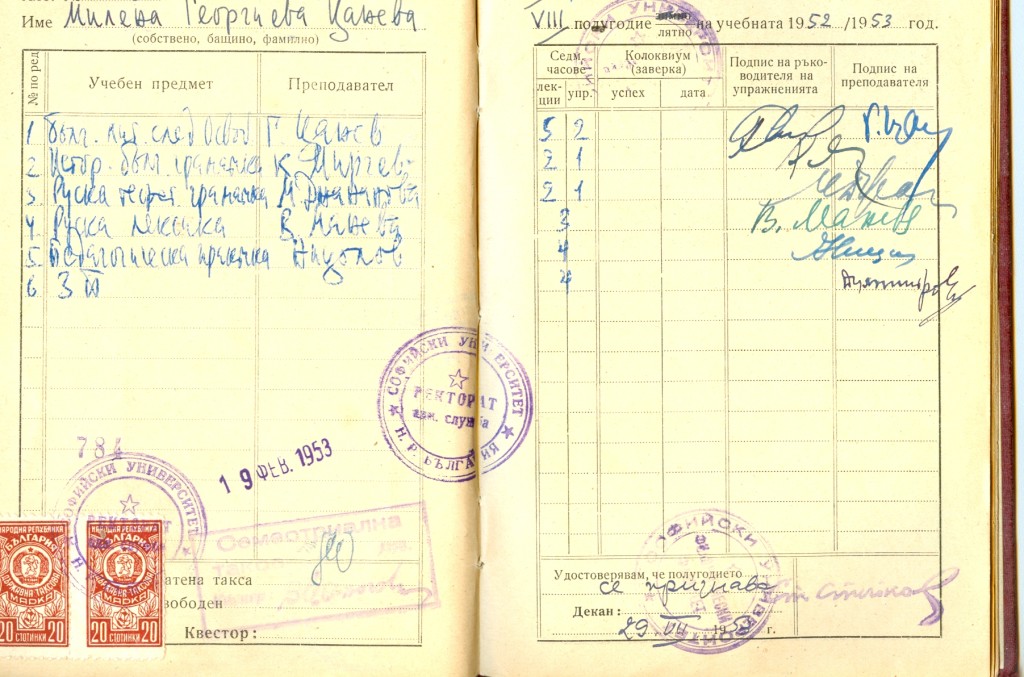 Име Милена Георгиева Цанева
(собствено, бащино, фамилно)
№ по ред
Учебен предмет
Преподавател
1 Бълг. лит. след Освоб Г. Цанев
2 Истор. бълг. граматика К. Мирчев
3 Руска теорет. граматика М.
4 Руска лексика В. Манева
5 Педагогическа практика
6
784
19 ФЕВ. 1953
СОФИЙСКИ УНИВЕРСИТЕТ
РЕКТОРАТ
адм. служба
Н. Р. БЪЛГАРИЯ
СОФИЙСКИ УНИВЕРСИТЕТ
РЕКТОРАТ
Семестриална
такса
НАРОДНА РЕПУБЛИКА
БЪЛГАРИЯ
ДЪРЖАВНА ТАКСА
МАРКА
20 СТОТИНКИ 20
НАРОДНА РЕПУБЛИКА
БЪЛГАРИЯ
ДЪРЖАВНА ТАКСА
МАРКА
20 СТОТИНКИ 20
атена такса
вободен
Квестор:
VIII полугодие лятно на учебната 1952 /1953 год.
Седм. часове
Колоквиум (заверка)
Подпис на ръководителя на упражненията
Подпис на преподавателя
лекции
упр.
успех
дата
5 2
2 1
2 1
3 В. Манева
4
4
Удостоверявам, че полугодието
се признава
Декан:
29 VII 1953 г.
СОФИЙСКИ УНИВЕРСИТЕТ